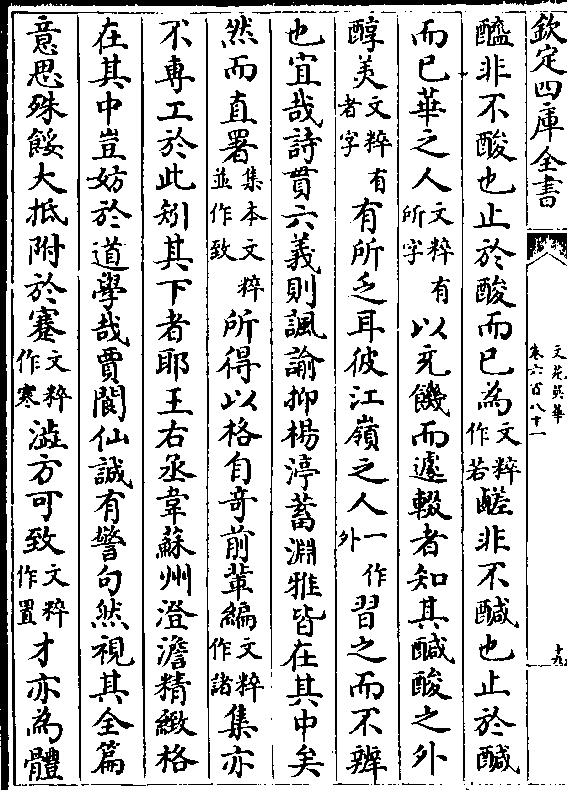 欽定四庫全書
文苑英華
卷六百八十一
十九
醯非不酸也止於酸而已為文粹作若鹺非不鹹也止於鹹
而已華之人文粹有所字以充饑而遽輟者知其鹹酸之外
醇美文粹有者字有所乏耳彼江嶺之人一作外習之而不辨
也宜哉詩貫六義則諷諭抑揚渟蓄淵雅皆在其中矣
然而直署集本文粹並作致所得以格自奇前輩編文粹作諸集亦
不専工於此矧其下者耶王右丞韋蘇州澄澹精緻格
在其中豈妨於道學哉賈閬仙誠有警句然視其全篇
意思殊餒大抵附於蹇文粹作寒澁方可致文粹作置才亦為體